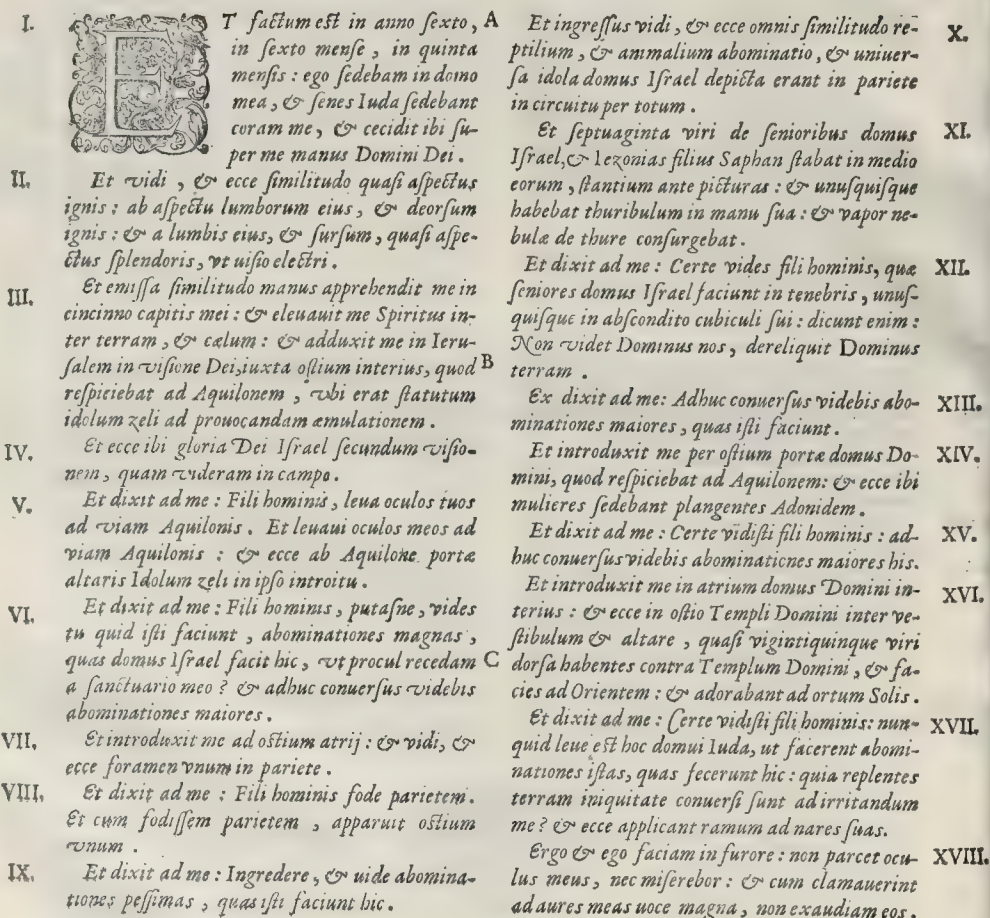 I. ET factum est in anno sexto, A
in sexto mense, in quinta
mensis: ego sedebam in domo
mea, & senes Iuda sedebant
coram me, & cecidit ibi su-
per me manus Domini Dei.
II. Et vidi, & ecce similitudo quasi aspectus
ignis: ab aspectu lumborum eius, & deorsum
ignis: & a lumbis eius, & sursum, quasi aspe-
ctus splendoris, vt uisio electri.
III. Et emissa similitudo manus apprehendit me in
cincinno capitis mei: & eleuauit me Spiritus in-
ter terram, & cælum: & adduxit me in Ieru-
salem in visione Dei, iuxta ostium interius, quod B
respiciebat ad Aquilonem, vbi erat statutum
idolum zeli ad prouocandam æmulationem.
IV. Et ecce ibi gloria Dei Israel secundum visio-
nem, quam videram in campo.
V. Et dixit ad me: Fili hominis, leua oculos tuos
ad viam Aquilonis. Et leuaui oculos meos ad
viam Aquilonis: & ecce ab Aquilone portæ
altaris Idolum zeli in ipso introitu.
VI. Et dixit ad me: Fili hominis, putasne, vides
tu quid isti faciunt, abominationes magnas,
quas domus Israel facit hic, vt procul recedam C
a sanctuario meo? & adhuc conuersus videbis
abominationes maiores.
VII. Et introduxit me ad ostium atrij: & vidi, &
ecce foramen vnum in pariete.
VIII. Et dixit ad me: Fili hominis fode parietem.
Et cum fodissem parietem, apparuit ostium
vnum.
IX. Et dixit ad me: Ingredere, & uide abomina-
tiones pessimas, quas isti faciunt hic.
Et ingressus vidi, & ecce omnis similitudo re- X.
ptilium, & animalium abominatio, & uniuer-
sa idola domus Israel depicta erant in pariete
in circuitu per totum.
Et septuaginta viri de senioribus domus XI.
Israel, & Iezonias filius Saphan stabat in medio
eorum, stantium ante picturas: & unusquisque
habebat thuribulum in manu sua: & vapor ne-
bulæ de thure consurgebat.
Et dixit ad me: Certe vides fili hominis, quæ XII.
seniores domus Israel faciunt in tenebris, unus-
quisque in abscondito cubiculi sui: dicunt enim:
Non videt Dominus nos, dereliquit Dominus
terram.
Ex dixit ad me: Adhuc conuersus videbis abo- XIII.
minationes maiores, quas isti faciunt.
Et introduxit me per ostium portæ domus Do- XIV.
mini, quod respiciebat ad Aquilonem: & ecce ibi
mulieres sedebant plangentes Adonidem.
Et dixit ad me: Certe vidisti fili hominis: ad- XV.
huc conuersus videbis abominationes maiores his.
Et introduxit me in atrium domus Domini in- XVI.
terius: & ecce in ostio Templi Domini inter ve-
stibulum & altare, quasi vigintiquinque viri
dorsa habentes contra Templum Domini, & fa-
cies ad Orientem: & adorabant ad ortum Solis.
Et dixit ad me: Certe vidisti fili hominis: nun- XVII.
quid leue est hoc domui Iuda, ut facerent abomi-
nationes istas, quas fecerunt hic: quia replentes
terram iniquitate conuersi sunt ad irritandum
me? & ecce applicant ramum ad nares suas.
Ergo & ego faciam in furore: non parcet ocu- XVIII.
lus meus, nec miserebor: & cum clamauerint
ad aures meas uoce magna, non exaudiam eos.